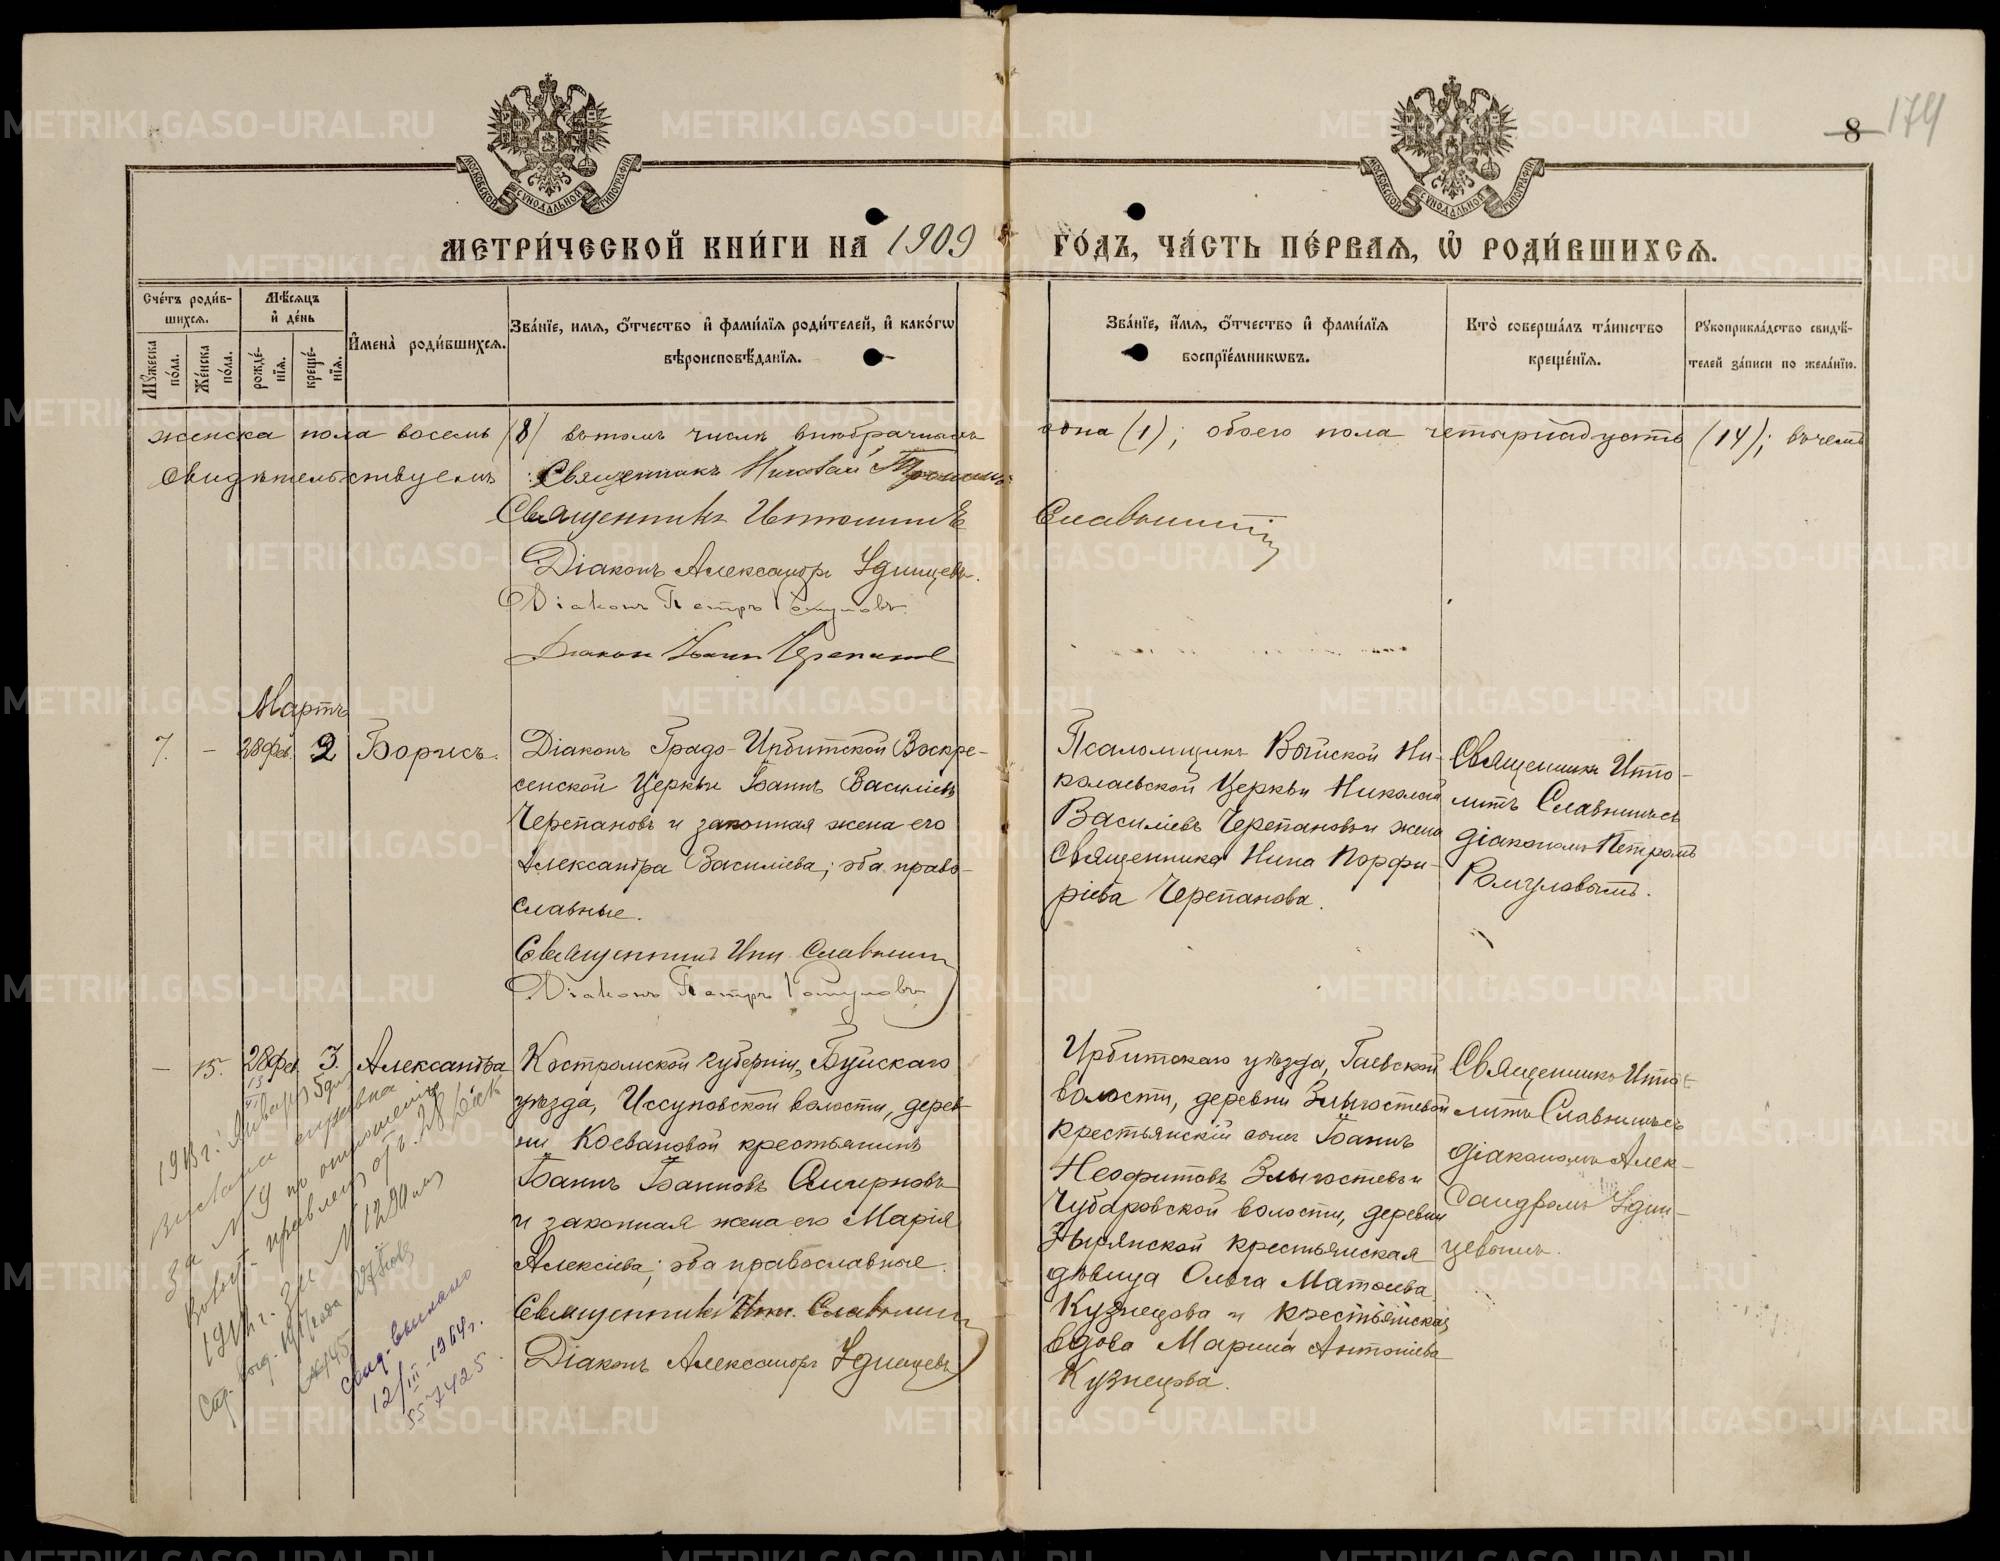 МЕТРИ́ЧЕСКОЙ КНИ́ГИ НА 1909 ГО́ДЪ, ЧА́СТЬ ПЕ́РВАЯ, Ѽ РОДИ́ВШИХСЯ.
8 174
Сче́тъ роди́в-
шихся.
Мѣ́сяцъ
и҆ де́нь
Му́жеска по́ла.
Же́нска по́ла.
рожде́-
нїя.
креще́-
нїя.
И҆мена̀ роди́вшихся.
Зва́нїе, имя, ѻ҆́тчество и҆ фами́лїя роди́телей, и҆ како́гѡ
вѣроисповѣ́данїя.
Зва́нїе, и҆́мя, ѻ҆́тчество и҆ фами́лїя
воспрїе́мникѡвъ.
Кто̀ соверша́лъ та́инство
креще́нїя.
Рꙋкоприкла́дство свидѣ́-
телей за́писи по жела́нїю.
женска пола восемь (8) въ томъ числѣ внѣбрачныхъ одна (1); обоего пола четырнадцать (14); въ чемъ
свидѣтельствуемъ: Священникъ Николай
Священникъ Ипполитъ Славнинъ
Діаконъ Александръ Удинцевъ.
Діаконъ Петръ Ромуловъ.
Діаконъ Іоаннъ Черепановъ
Мартъ
7. - 28 Фев. 2 Борисъ.
Діаконъ Градо-Ирбитской Воскре-
сенской Церкви Іоаннъ Василіевъ
Черепановъ и законная жена его
Александра Василіева; оба право-
славные.
Священникъ Ипп. Славнин
Діаконъ Петръ Ромуловъ
Псаломщикъ Ни-
колаевской Церкви Николай
Василіевъ Черепановъ и жена
Священника Нина Порфи-
ріева Черепанова.
Священникъ Иппо-
литъ Славнинъ съ
діакономъ Петромъ
Ромуловымъ.
- 15. 28 Фев. 3. Александра
Костромской губерніи, Буйскаго
уѣзда, Иссуповской волости, дерев-
ни Коевановой крестьянинъ
Іоаннъ Іоанновъ Смирновъ
и законная жена его Марія
Алексіева; оба православные.
Священникъ Ипп. Славнин
Діаконъ Александръ Удинцевъ
Ирбитскаго уѣзда, Гаевской
волости, деревни Злыгостевой
крестьянскій сынъ Іоаннъ
Неофитовъ Злыгостевъ и
Чубаровской волости, деревни
крестьянская
дѣвица Ольга Матѳеева
Кузнецова и крестьянская
вдова Марина Антоніева
Кузнецова.
Священникъ Иппо-
литъ Славнинъ съ
діакономъ Алек-
сандромъ Удин-
цевымъ.
1913 г. Января 5 дня
справка
за № 9 по отношенію
Волост. правленія отъ 28 Дек
191 г. за № 1290
свид. выслано
12/III-1964 г.
55 7425.
METRIKI.GASO-URAL.RU